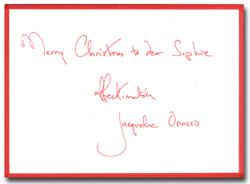 Merry Christmas to dear Sophie
affectionately
Jacqueline Onassis